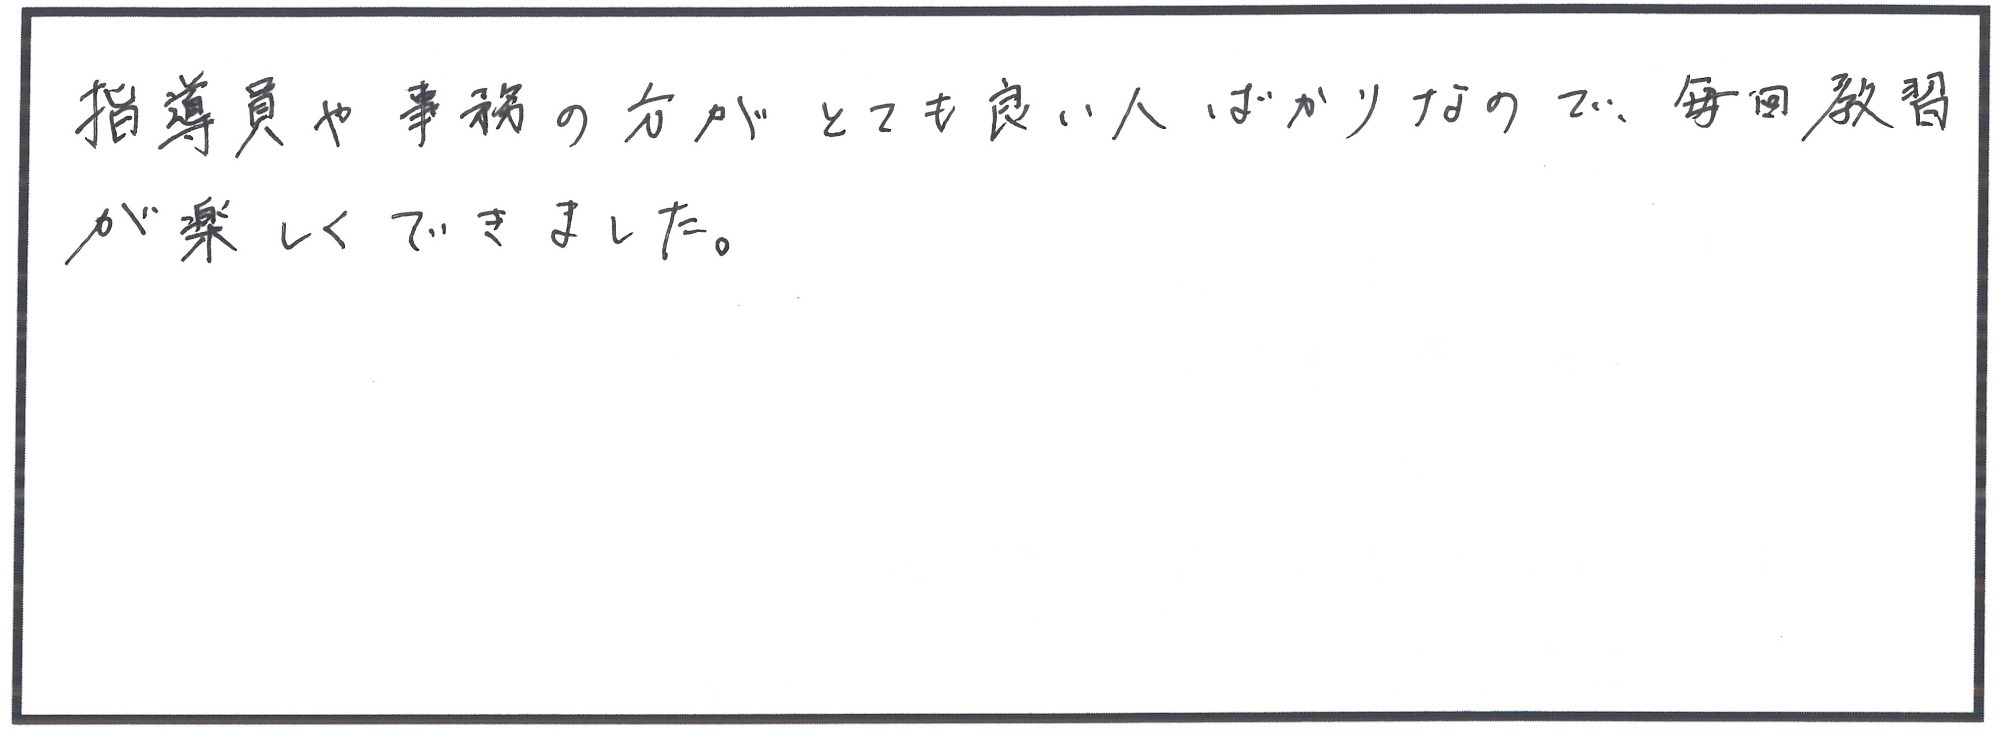 指導員や事務の方がとても良い人ばかりなので、毎回教習
が楽しくできました。